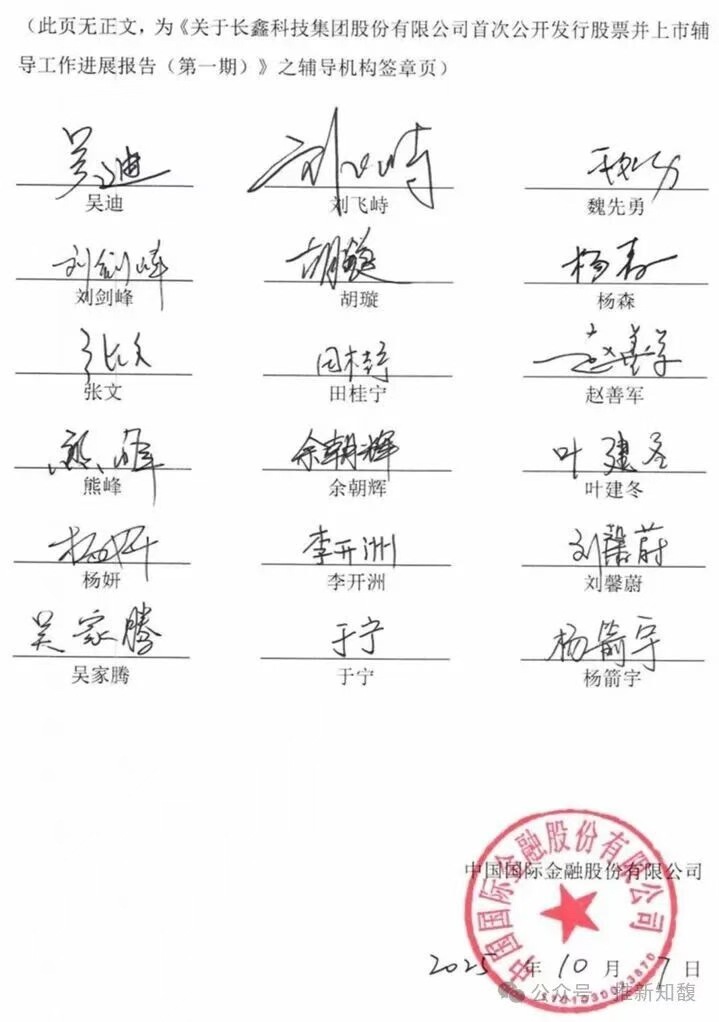 （此页无正文，为《关于长鑫科技集团股份有限公司首次公开发行股票并上市辅
导工作进展报告（第一期）》之辅导机构签章页）
吴迪 刘飞峙 魏先勇
吴迪 刘飞峙 魏先勇
刘剑峰 胡璇 杨森
刘剑峰 胡璇 杨森
张文 田桂宁 赵善军
张文 田桂宁 赵善军
熊峰 余朝辉 叶建冬
熊峰 余朝辉 叶建冬
杨妍 李开洲 刘馨蔚
杨妍 李开洲 刘馨蔚
吴家腾 于宁 杨箭宇
吴家腾 于宁 杨箭宇
中国国际金融股份有限公司
中国国际金融股份有限公司
2025年10月7日
公众号·推新知馥